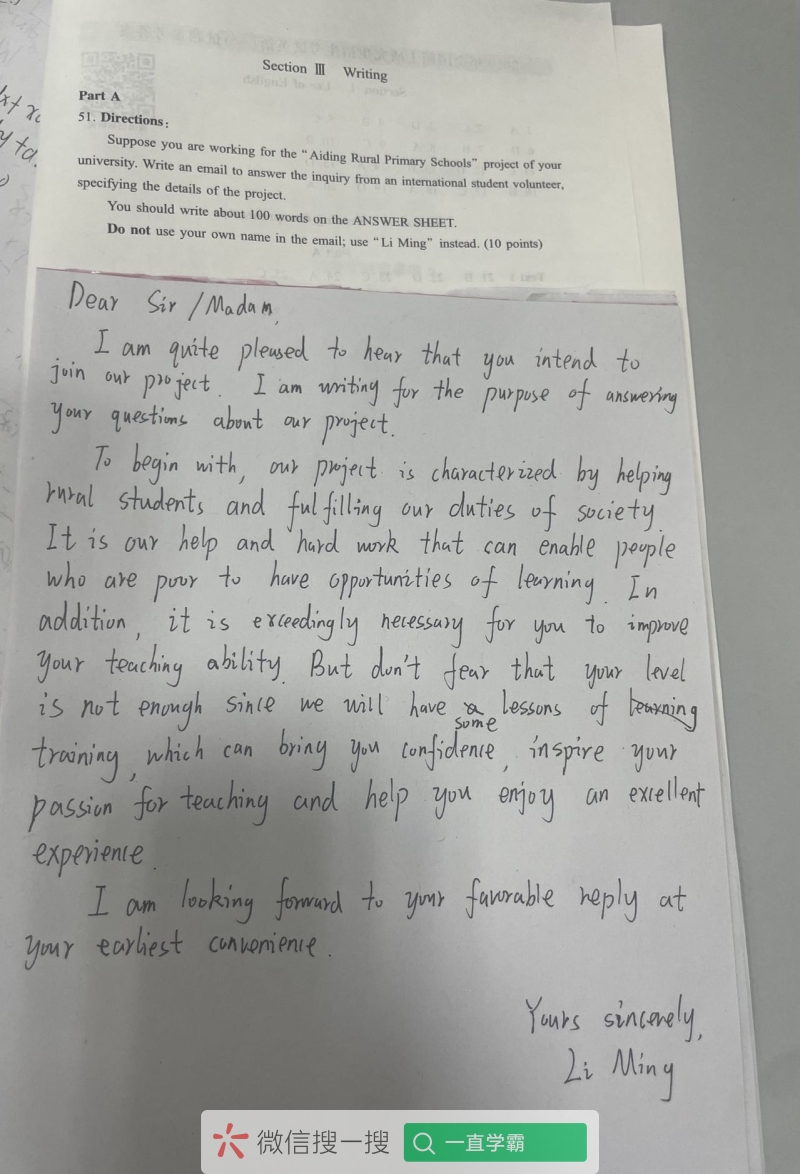 Section Ⅲ Writing
Part A
51. Directions:
Suppose you are working for the "Aiding Rural Primary Schools" project of your
university. Write an email to answer the inquiry from an international student volunteer,
specifying the details of the project.
You should write about 100 words on the ANSWER SHEET.
Do not use your own name in the email; use "Li Ming" instead. (10 points)
Dear Sir/Madam,
I am quite pleased to hear that you intend to
join our project. I am writing for the purpose of answering
your questions about our project.
To begin with, our project is characterized by helping
rural students and fulfilling our duties of society.
It is our help and hard work that can enable people
who are poor to have opportunities of learning. In
addition, it is exceedingly necessary for you to improve
your teaching ability. But don't fear that your level
is not enough since we will have some lessons of
training, which can bring you confidence, inspire your
passion for teaching and help you enjoy an excellent
experience.
I am looking forward to your favorable reply at
your earliest convenience.
Yours sincerely,
Li Ming
微信搜一搜
一直学霸